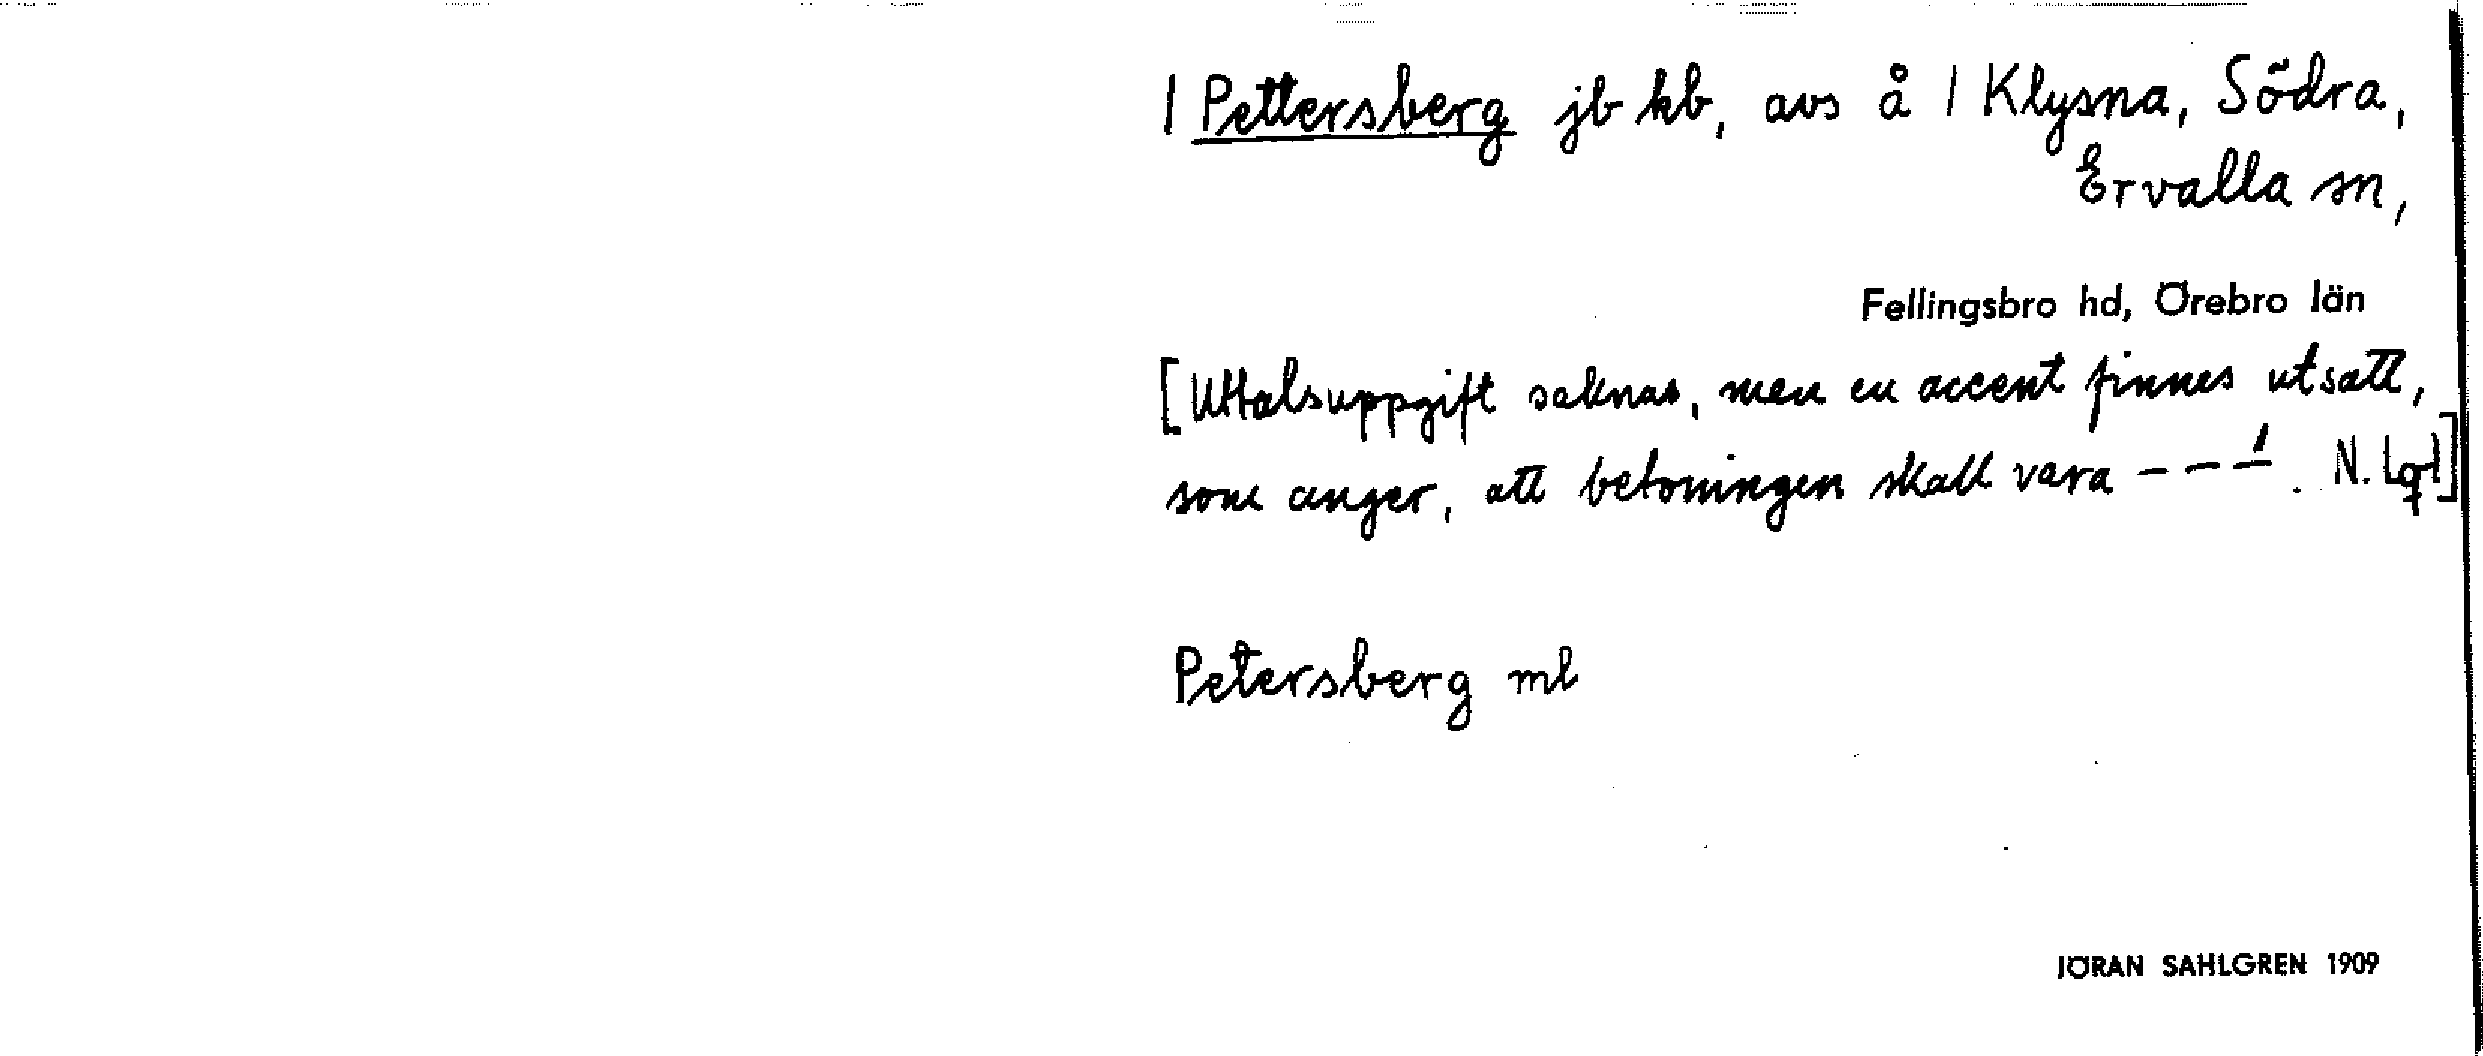 1 Pettersberg jb kb, avs å 1 Klysna, Södra,
Ervalla sn,
Fellingsbro hd, Örebro län
[Uttalsuppgift saknas, men en accent finnes utsatt,
som anger, att betoningen skall vara – – –́ . N. Lqt]
Petersberg ml
JÖRAN SAHLGREN 1909